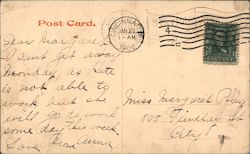 Post Card.
CINCINNATI
JAN 20
1-AM
1908
4
Dear Margaret
I can't get away
Monday as Kate
is not able to
work but she
will go to work
some day this week.
Love from Anna
Miss Margaret
800
City